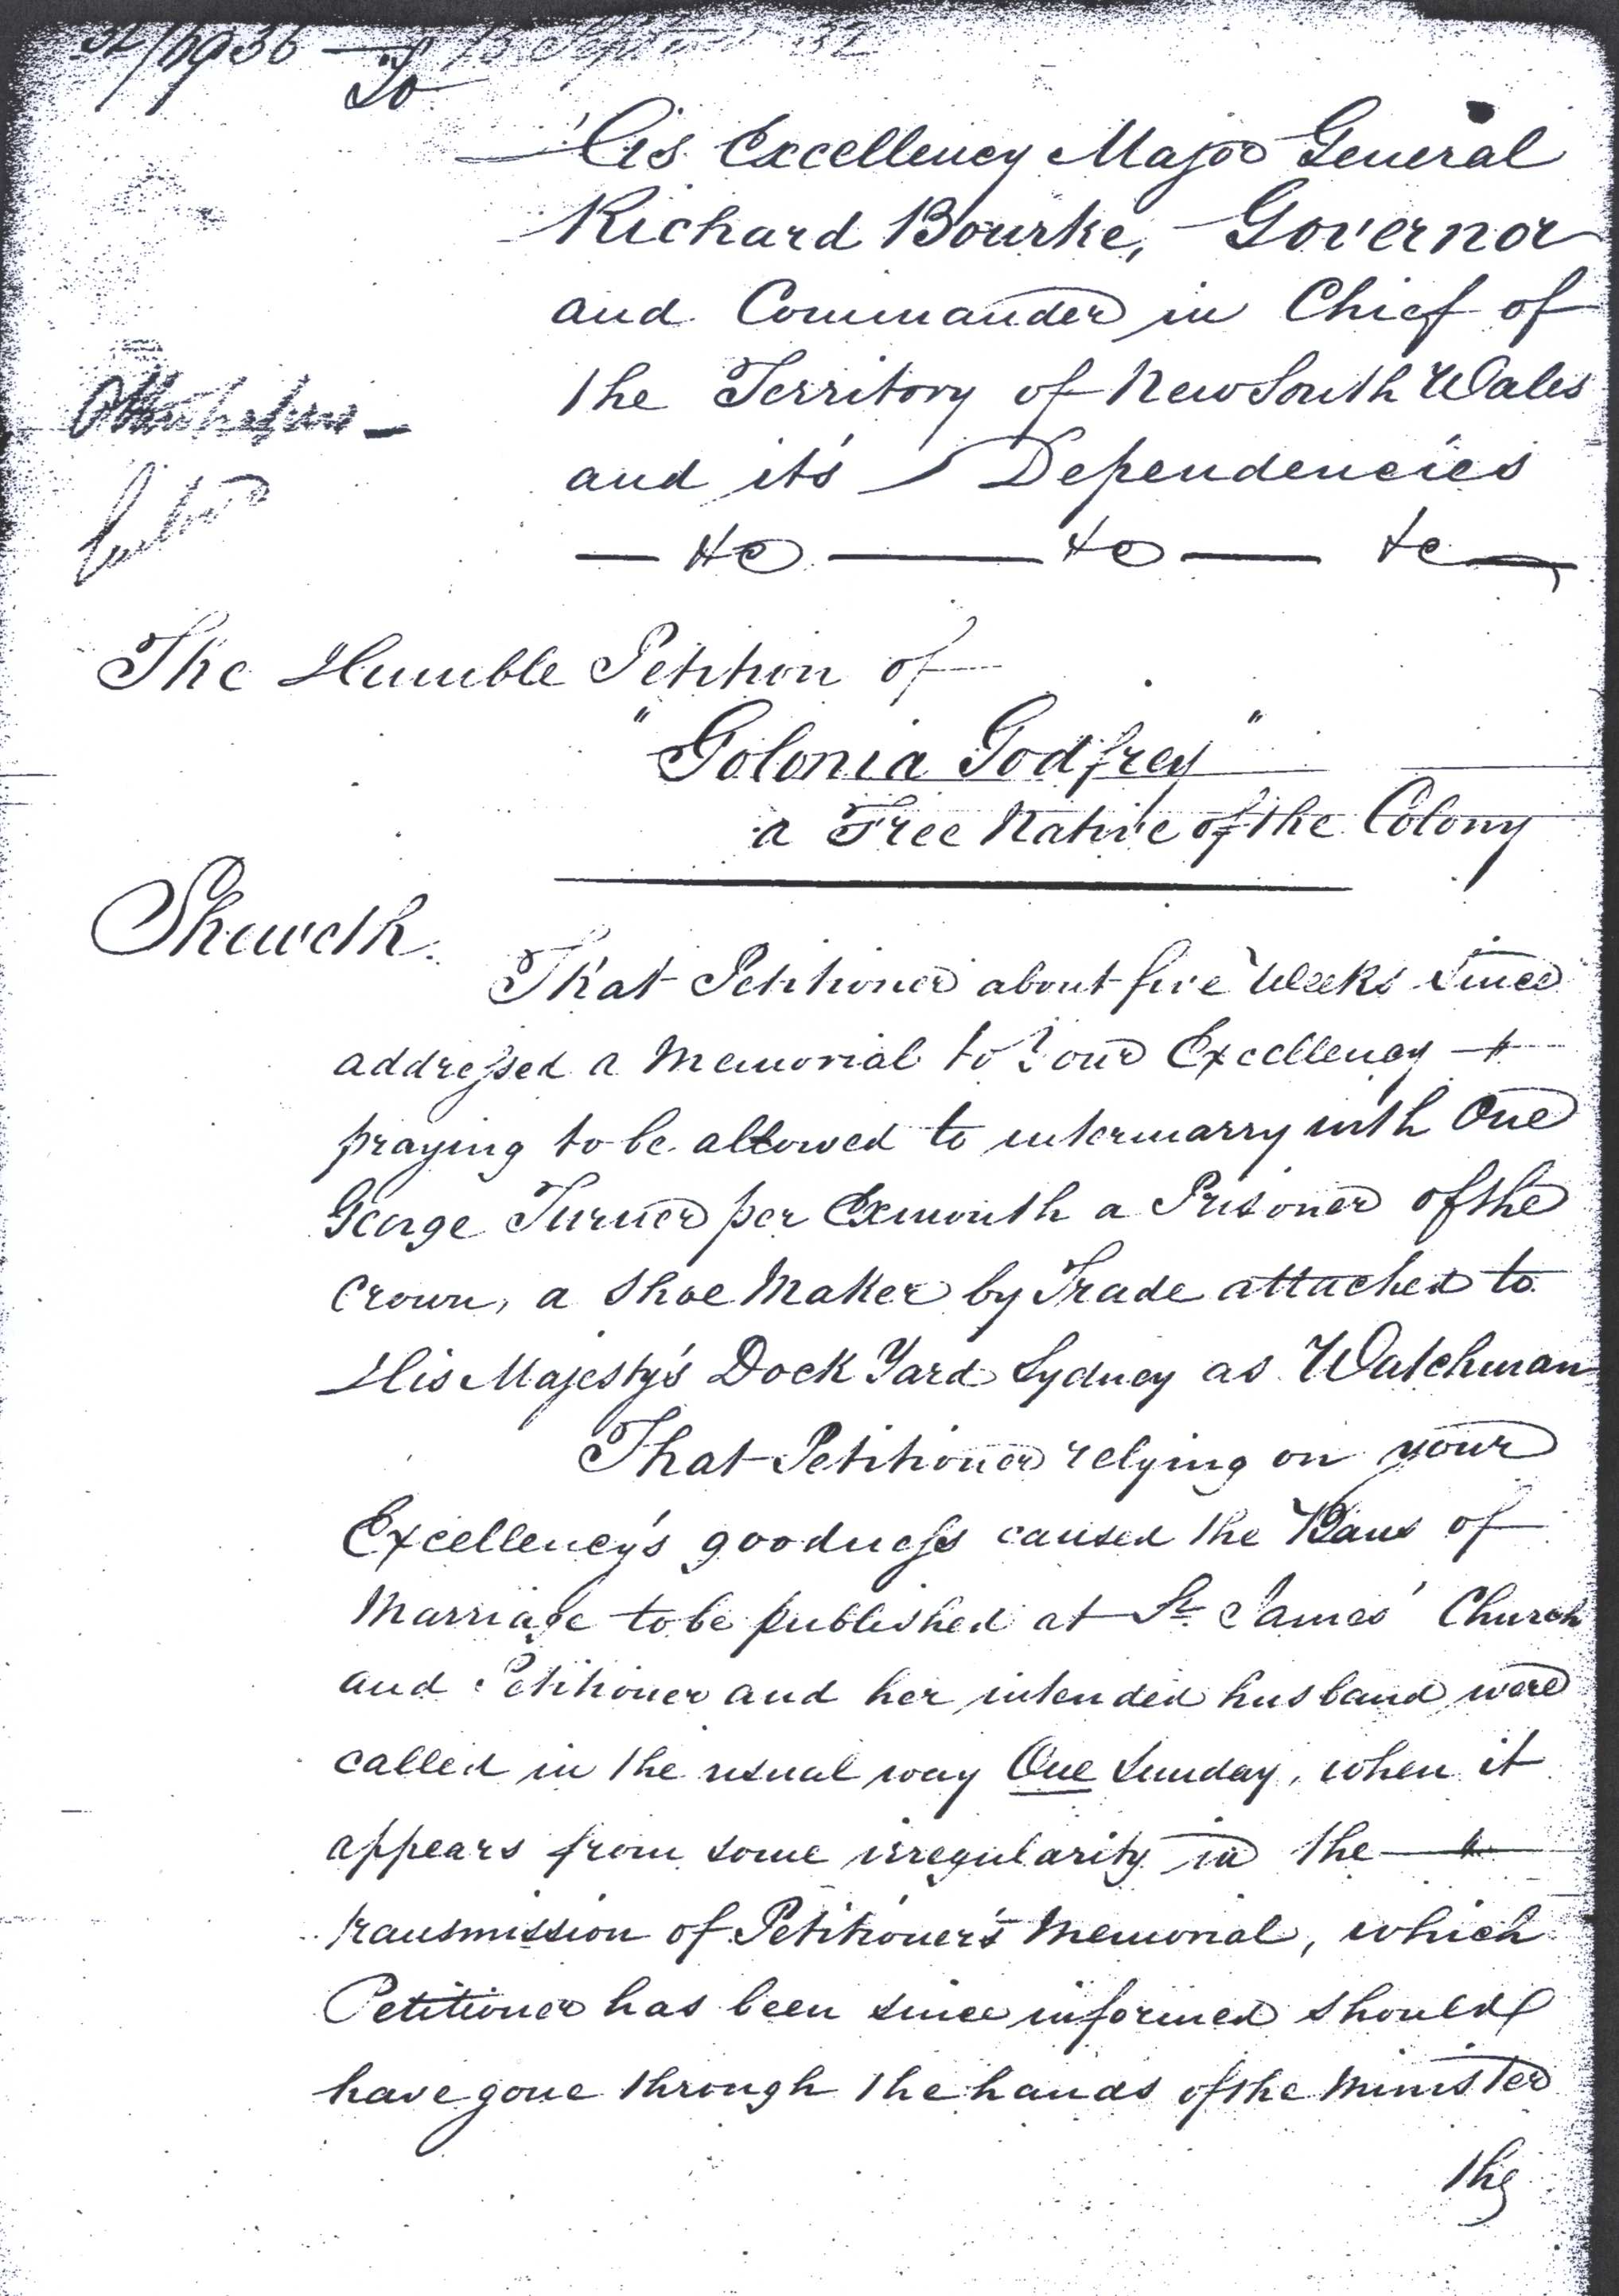 32/6936 — 13 Septem 32
To
His Excellency Major General
Richard Bourke, Governor
and Commander in Chief of
the Territory of New South Wales
and it's Dependencies
— &c — &c — &c —
The Humble Petition of
"Golonia Godfrey"
a Free Native of the Colony
Sheweth.
That Petitioner about five Weeks since
addressed a Memorial to Your Excellency
praying to be allowed to intermarry with One
George Turner per Exmouth a Prisoner of the
Crown, a Shoe Maker by Trade attached to
His Majesty's Dock Yard Sydney as Watchman
That Petitioner relying on your
Excellency's goodness caused the Bans of
Marriage to be published at St. James' Church
and Petitioner and her intended husband were
called in the usual way One Sunday, when it
appears from some irregularity in the
transmission of Petitioner's Memorial, which
Petitioner has been since informed should
have gone through the hands of the Minister
the